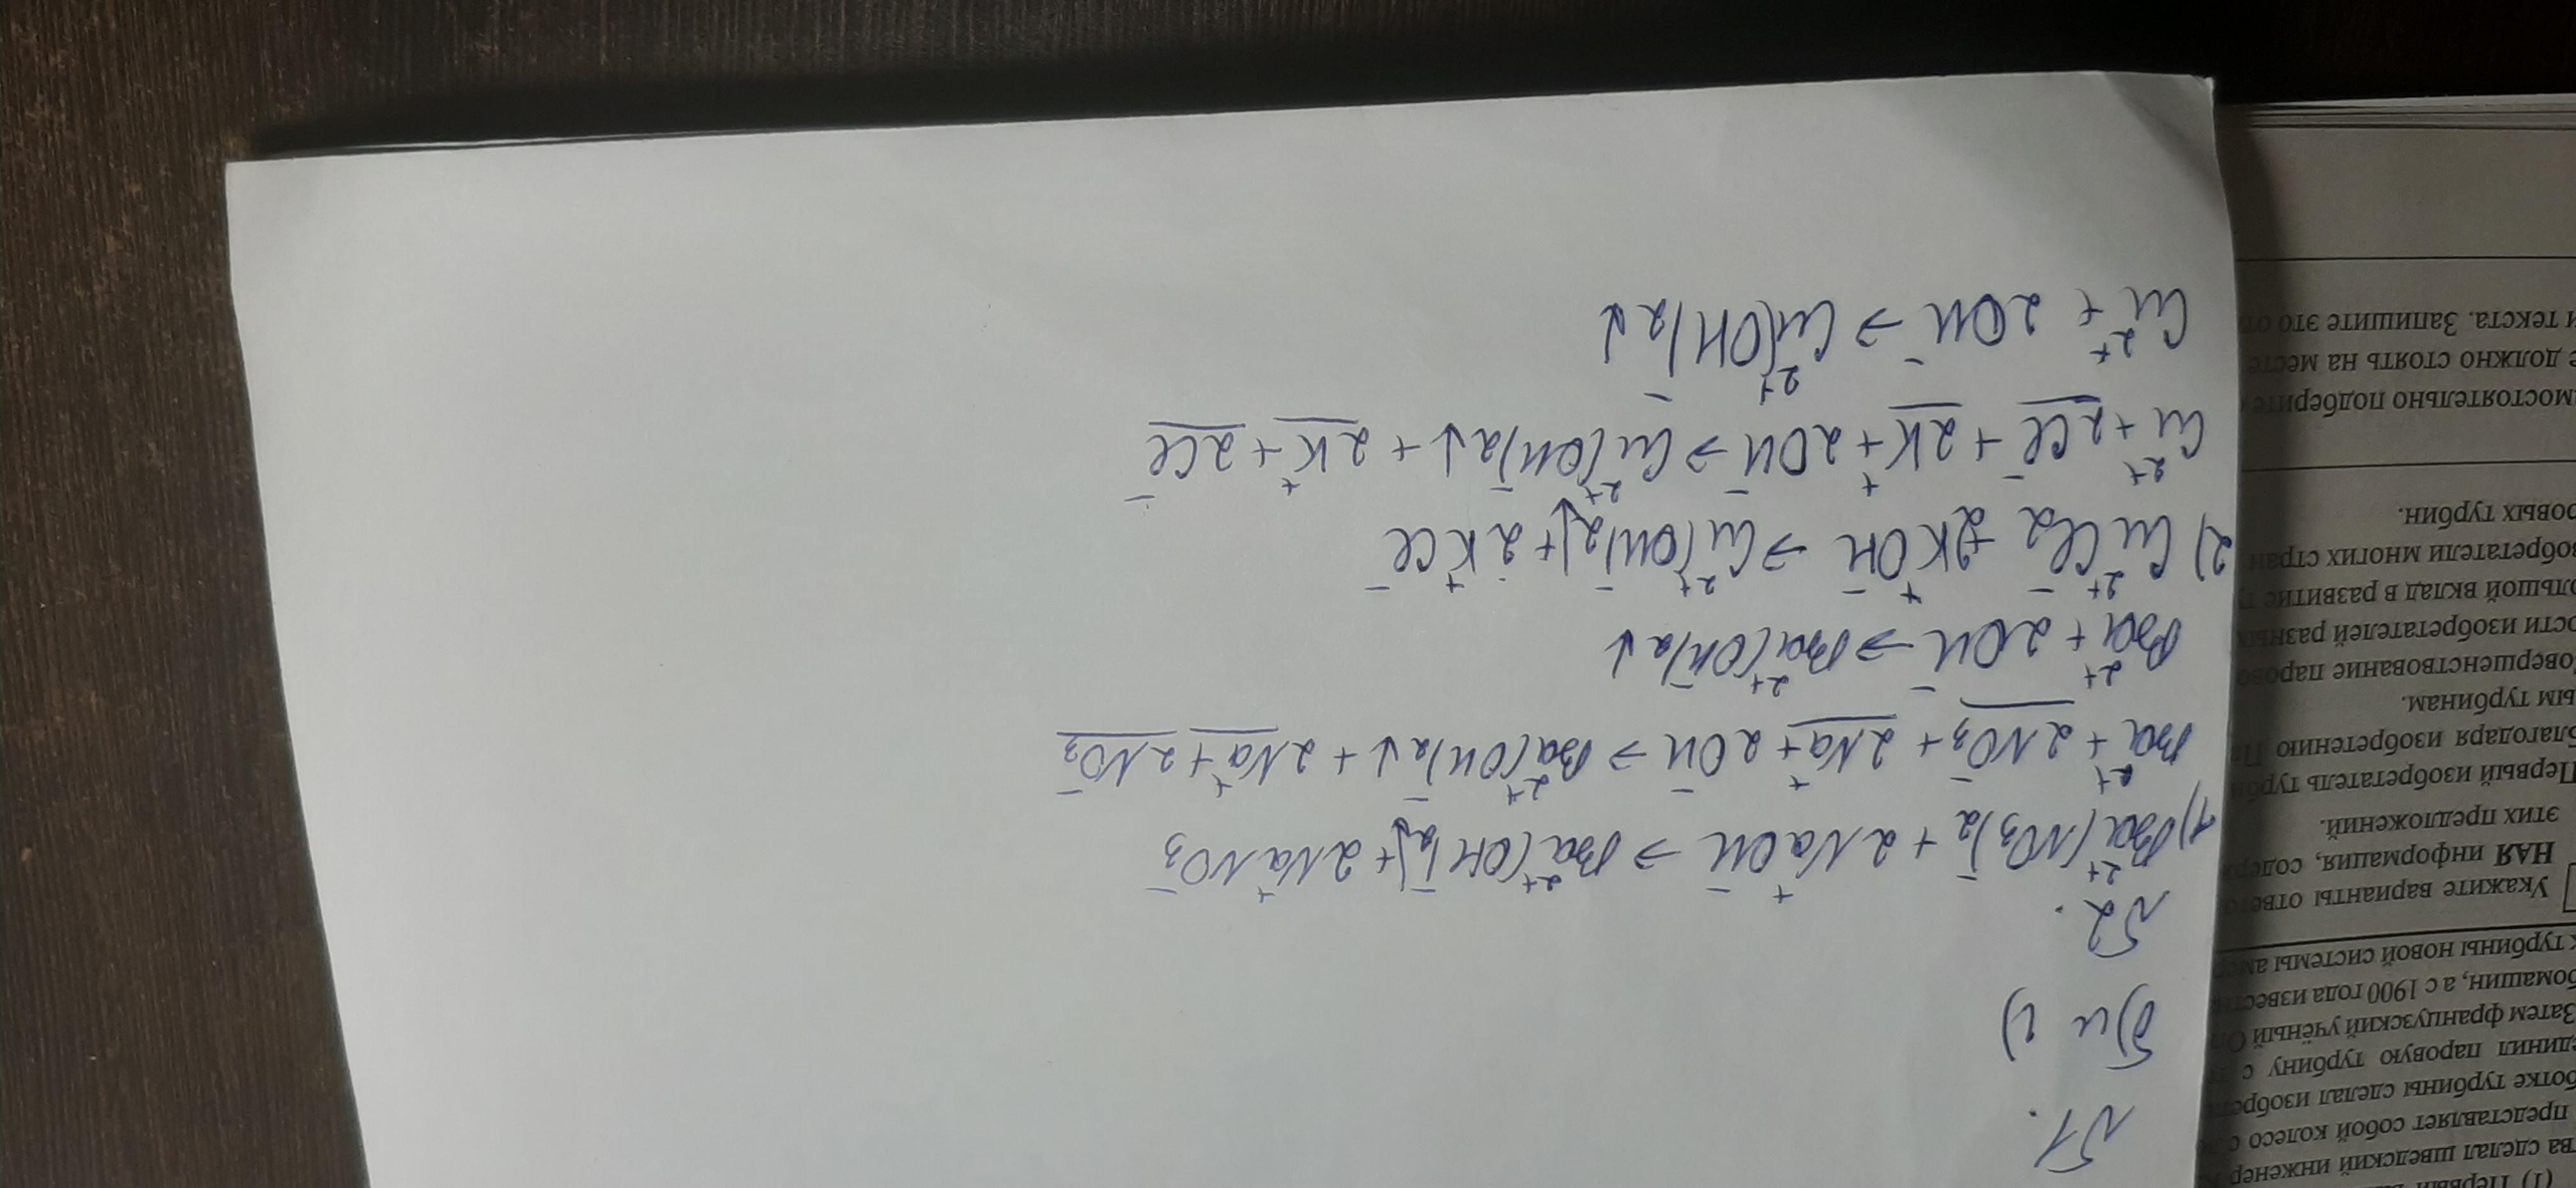 №1.
б) и г)
№2.
1) Ba²⁺(NO₃)⁻₂ + 2Na⁺OH⁻ → Ba²⁺(OH)⁻₂↓ + 2Na⁺NO₃⁻
Ba²⁺ + 2NO₃⁻ + 2Na⁺ + 2OH⁻ → Ba²⁺(OH)⁻₂↓ + 2Na⁺ + 2NO₃⁻
Ba²⁺ + 2OH⁻ → Ba²⁺(OH)⁻₂↓
2) Cu²⁺Cl⁻₂ + 2K⁺OH⁻ → Cu²⁺(OH)⁻₂↓ + 2K⁺Cl⁻
Cu²⁺ + 2Cl⁻ + 2K⁺ + 2OH⁻ → Cu²⁺(OH)⁻₂↓ + 2K⁺ + 2Cl⁻
Cu²⁺ + 2OH⁻ → Cu²⁺(OH)⁻₂↓
(1) Первы
ва сделал шведский инженер
представляет собой колесо с
ботке турбины сделал изобр
единил паровую турбину с
Затем французский учёный О
бомашин, а с 1900 года извест
к турбины новой системы
Укажите варианты ответо
НАЯ информация, содер
этих предложений.
Первый изобретатель турби
Благодаря изобретению
ым турбинам.
овершенствование паро
ости изобретателей разны
ольшой вклад в развитие
зобретатели многих стран
ровых турбин.
мостоятельно подберите
е должно стоять на месте
и текста. Запишите это